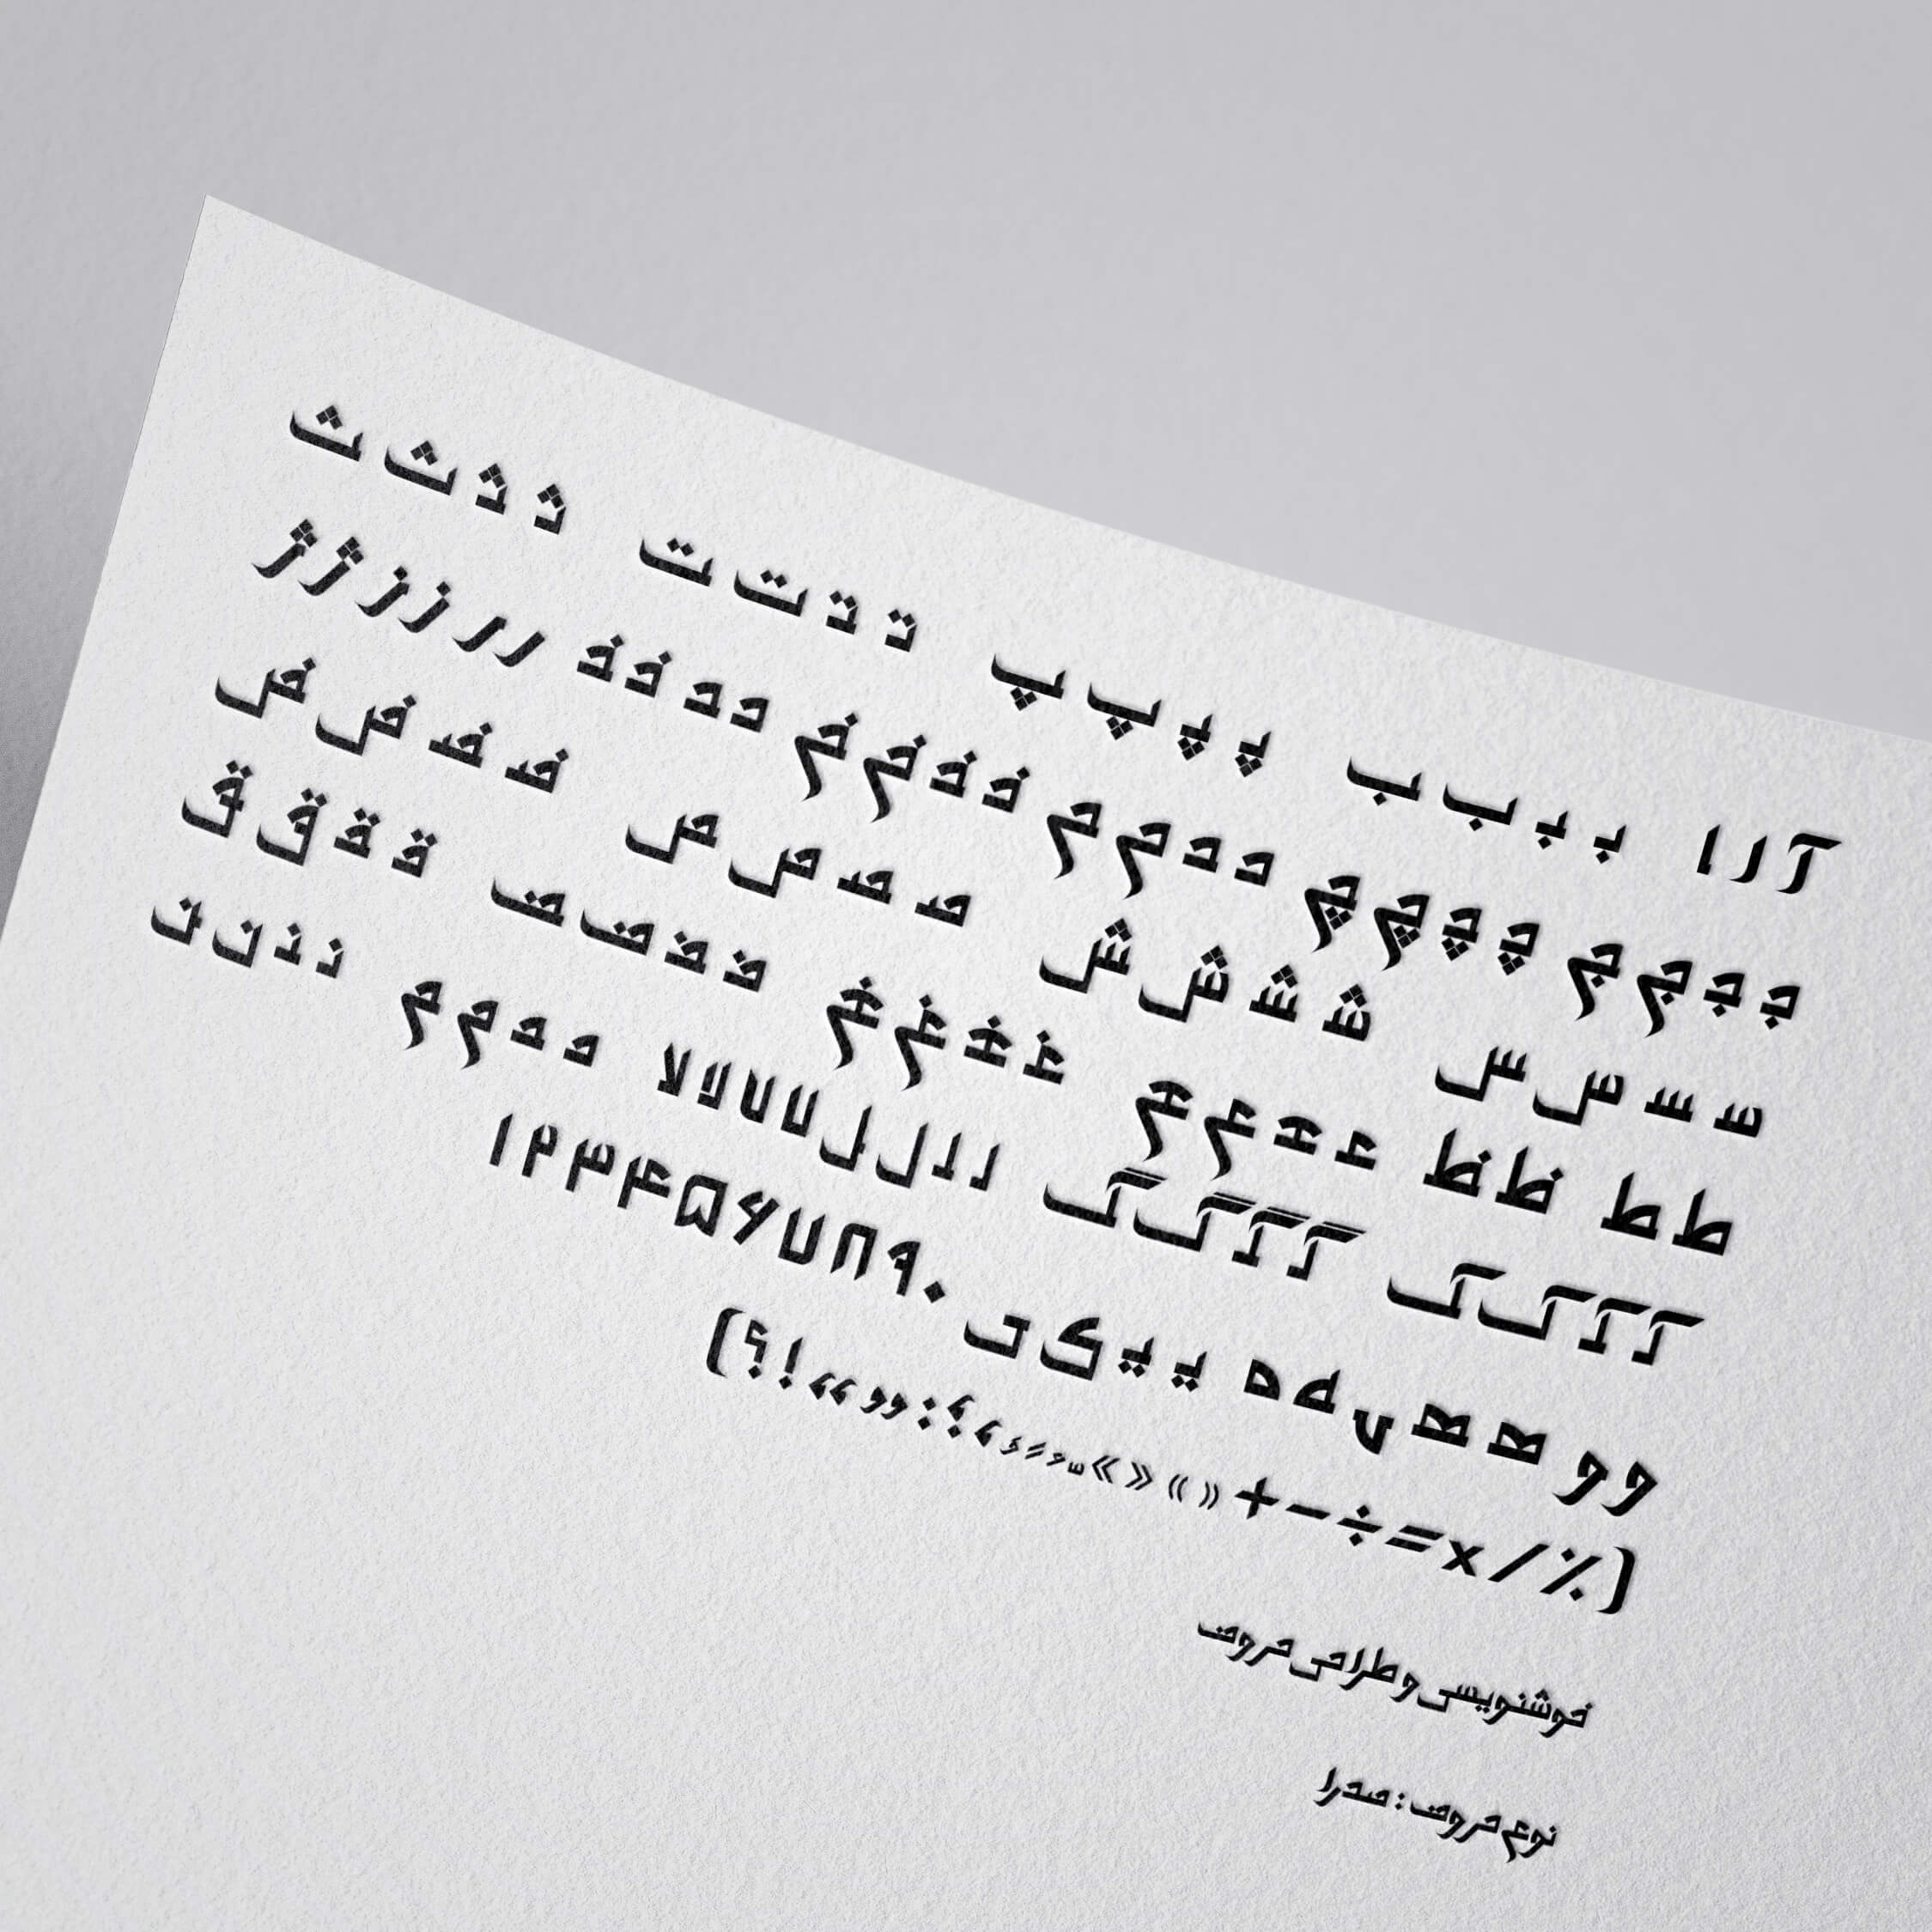 آ ا ا ب ب ب ب پ پ پ پ ت ت ت ت ث ث ث ث
ج ج ج ج چ چ چ چ ح ح ح ح خ خ خ خ د د ذ ذ ر ر ز ز ژ ژ
س س س س ش ش ش ش ص ص ص ص ض ض ض ض
ط ط ظ ظ ع ع ع ع غ غ غ غ ف ف ف ف ق ق ق ق
ک ک ک ک گ گ گ گ ل ل ل ل لا لا لا لا م م م م ن ن ن ن
و و ه ه ه ه ه ی ی ی ی ۱۲۳۴۵۶۷۸۹۰
( ٪ / × = ÷ − + « » « » ، ؛ : ” “ ! ؟ )
خوشنویسی و طراحی حروف
نوع حروف : صدرا